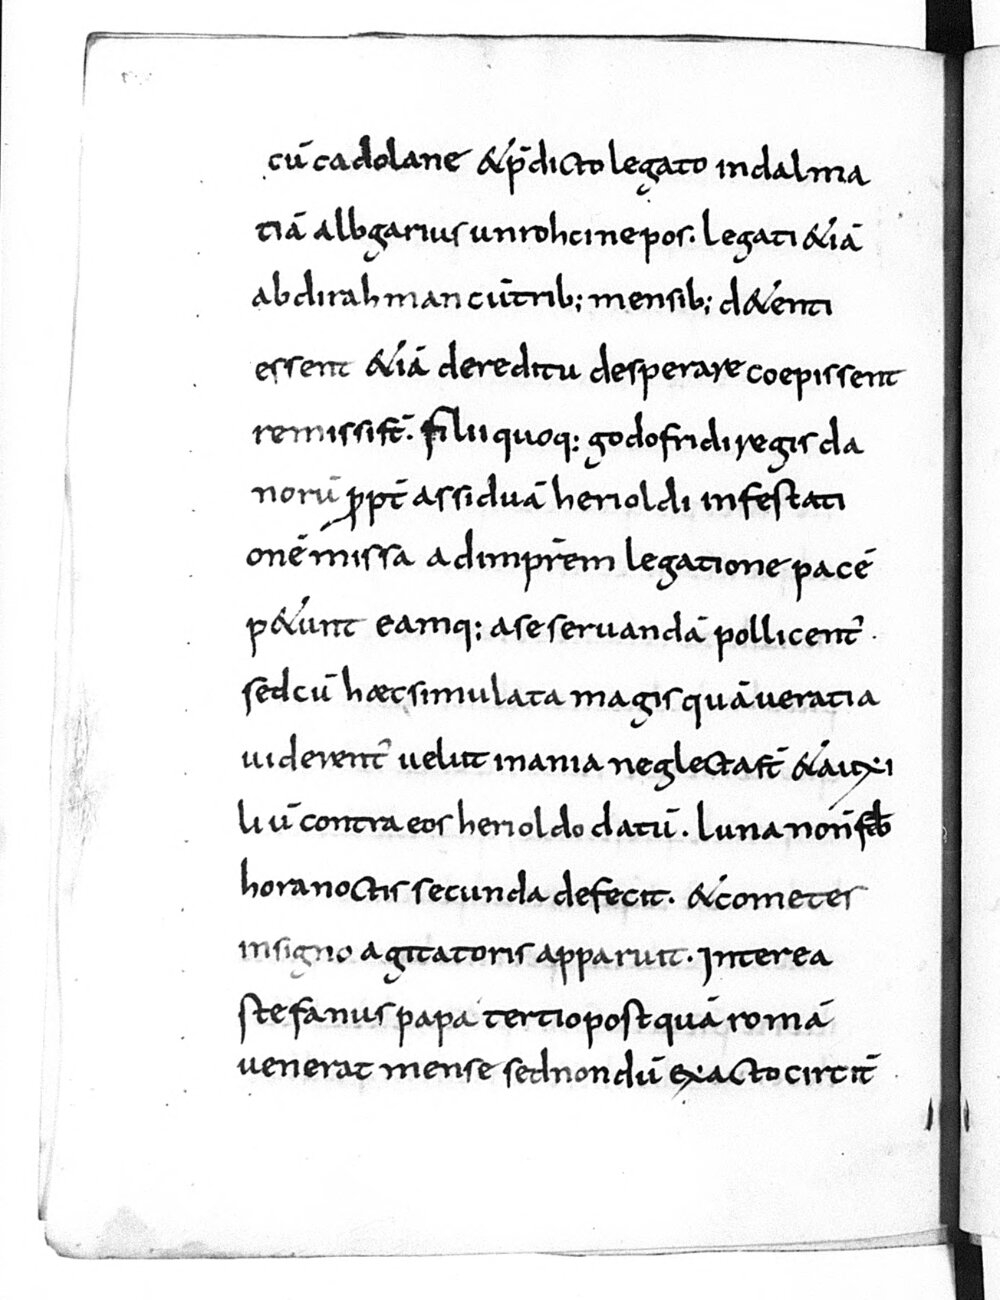 cū cadolane &p̄dicto legato in dalma
tiā albgarius unrohci nepos. legati &iā
abdirahman cū trib; mensib; d&enti
essent &iā de reditu desperare coepissent
remissi st̄. filii quoq: godofridi regis da
norū ꝓpt̄ assiduā herioldi infestati
onē missa ad impr̄em legatione pacē
p&unt eamq; a se seruandā pollicent᷑.
sed cū haec simulata magis quā ueratia
uiderent᷑ uelut inania neglecta st̄ &auxi
liū contra eos herioldo datū. luna non̄ feb̄
hora noctis secunda defecit. &cometes
in signo agitatoris apparuit. Interea
stefanus papa tertio postquā romā
uenerat mense sed nondū exacto circit̄